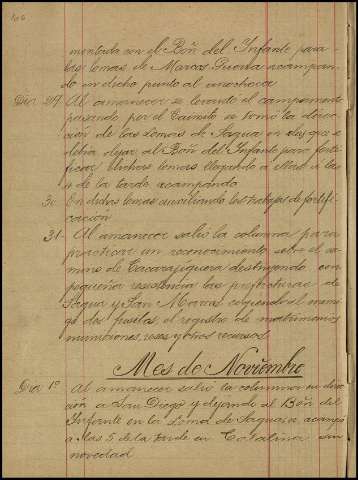 montada con el Bón del Infante para
las lomas de Marcos Puenta acampan-
do en dicho punto al anochecer
Dia 29 Al amanecer se levantó el campamento
pasando por el Caimito se tomó la direc-
ción de las Lomas de Sagua en las que se
debia dejar al Bón del Infante para forti
ficar dichas lomas llegando a ellas a las
4 de la tarde acampando
30 En dichas lomas auxiliando los trabajos de fortifi-
cación
31 Al amanecer salió la columna para
practicar un reconocimiento sobre el ca-
mino de Cacarajiguera destruyendo con
pequeña resistencia las prefecturas de
Sagua y San Marcos cogiendo al enemi-
go dos fusiles, el registro de matrimonios
municiones, reses y otros recursos
Mes de Noviembre
Dia 1º Al amanecer salió la columna en direc-
ción a San Diego y dejando al Bón del
Infante en la Loma de Sagua acampó
a las 5 de la tarde en Catalina sin
novedad